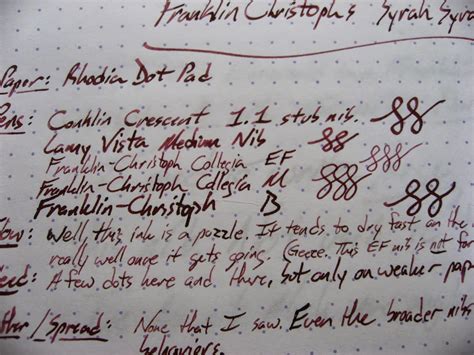 Franklin Christoph's Syrah Syra
Paper: Rhodia Dot Pad
ens: Conklin Crescent 1.1 stub nib.
Lamy Vista Medium Nib
Franklin-Christoph Collegia EF
Franklin-Christoph Collegia M
Franklin-Christoph B
low: Well, this ink is a puzzle. It tends to dry fast on the
really well once it gets going. (Geeee. This EF nib is not for
eed: A few dots here and there, but only on weaker pap
ther/Spread: None that I saw. Even the broader nibs
behaviors